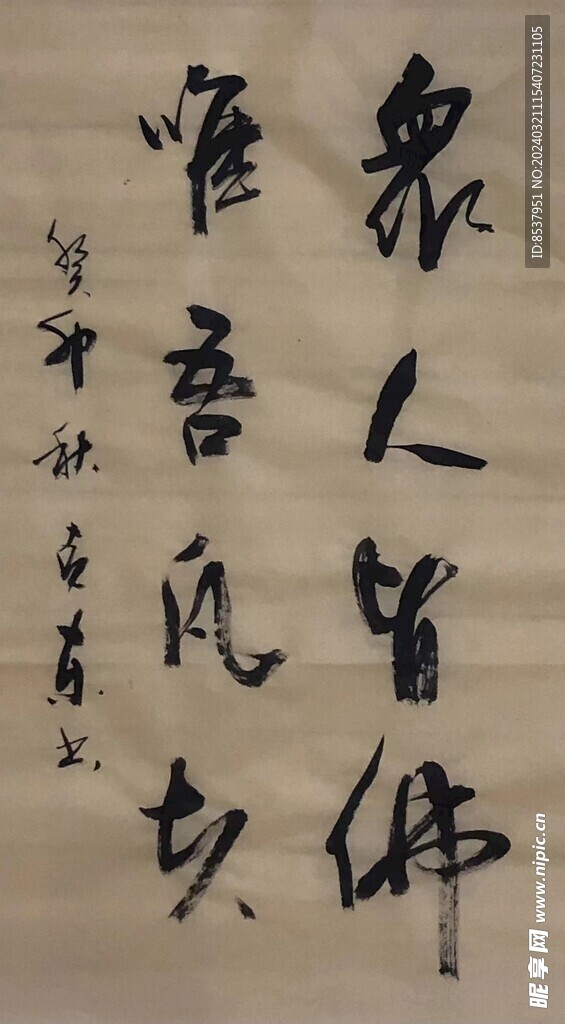 眾人皆佛
唯吾凡夫
癸卯秋 克東书
ID:8537951 NO:20240321115407231105
昵享网 www.nipic.cn